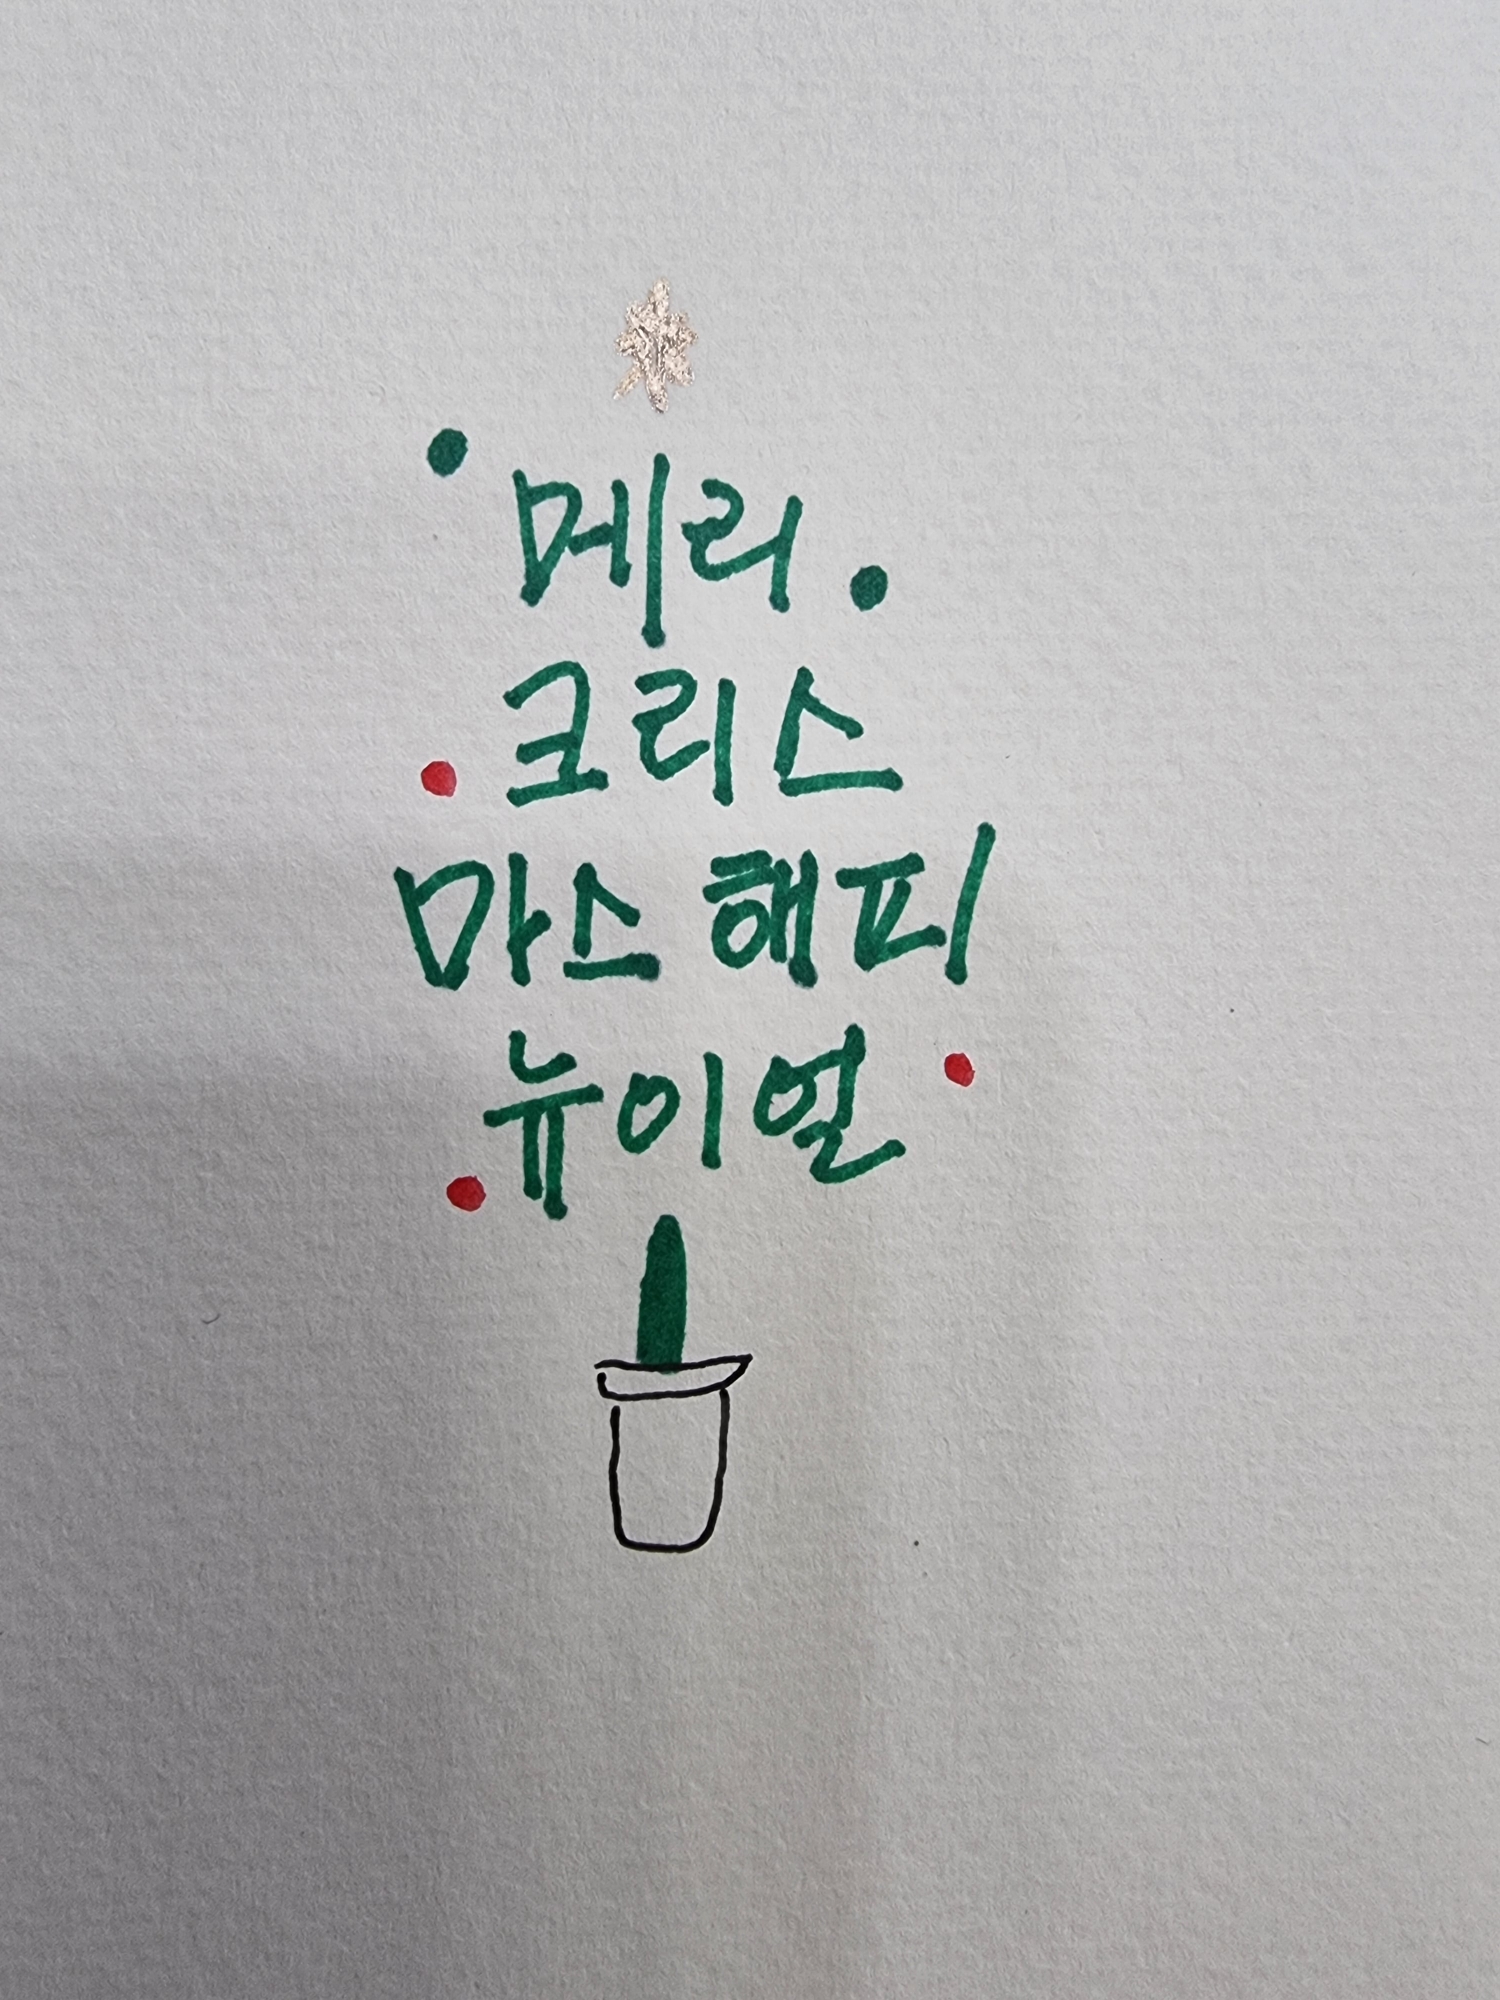 메리
크리스
마스 해피
뉴이얼